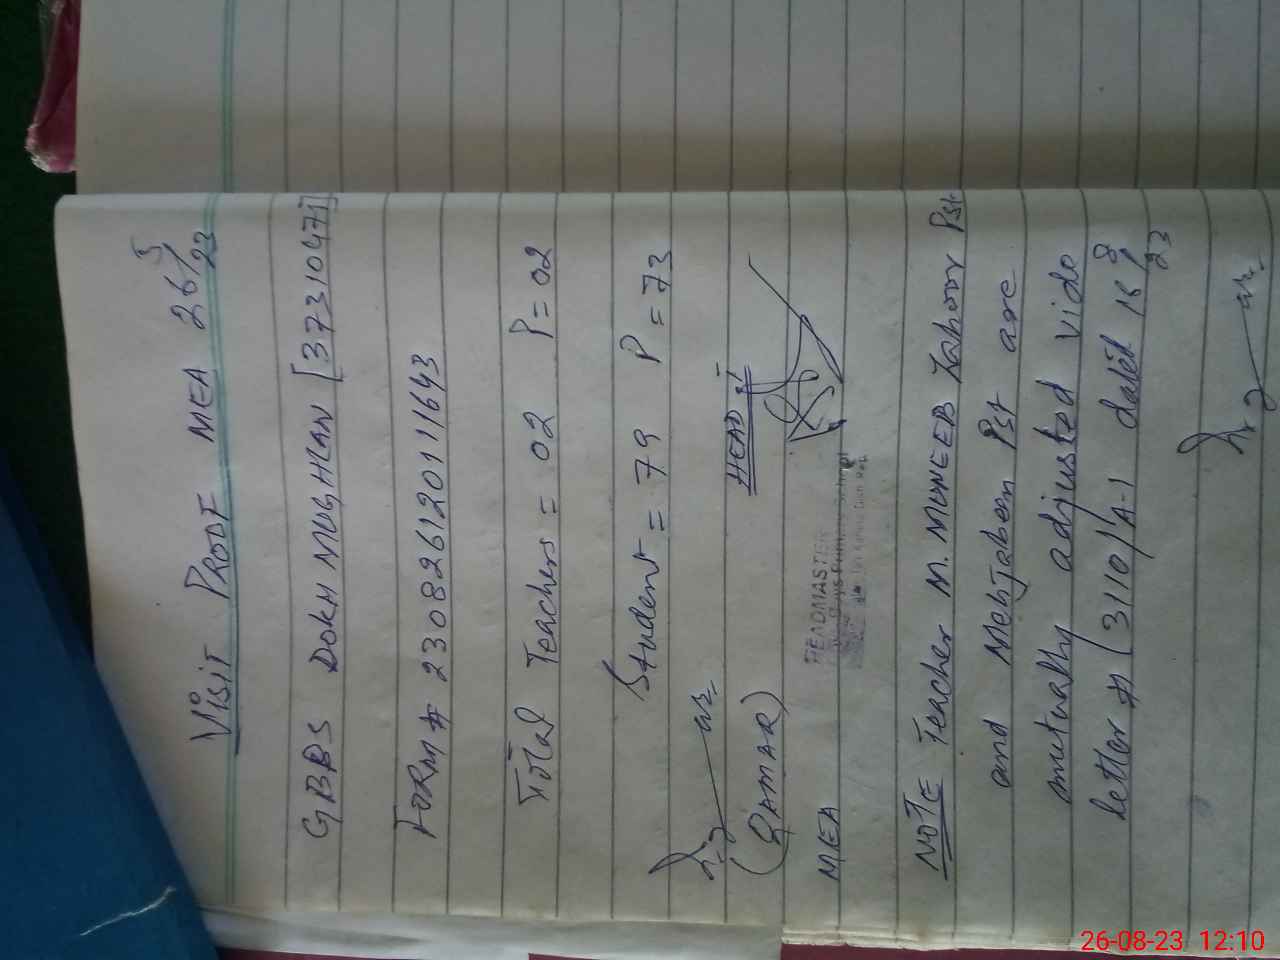 VISIT PROOF MEA 26/8/23
GBBS DOKH MUGHLAN [37310471]
FORM # 230826120111643
Total Teachers = 02 P = 02
Student = 79 P = 73
(QAMAR)
MEA
HEAD
HEADMASTER
NOTE Teacher M. MUNEEB Zahoor Pst
and Mehjabeen Pst are
mutually adjusted vide
letter # (3110/A-1 dated 18/8/23
26-08-23 12:10